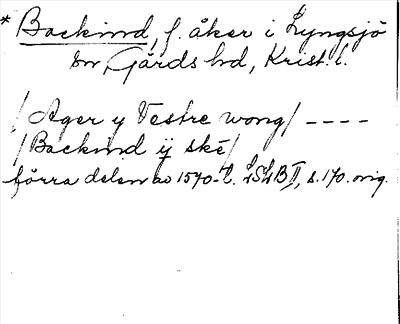 * Backind, f. åker i Lyngsjö
sn, Gärds hd, Krist. l.
/Ager y Vestre wong/ ----
/Backind ÿ ské/
förra delen av 1570-t. LSLB II, s. 170. orig.